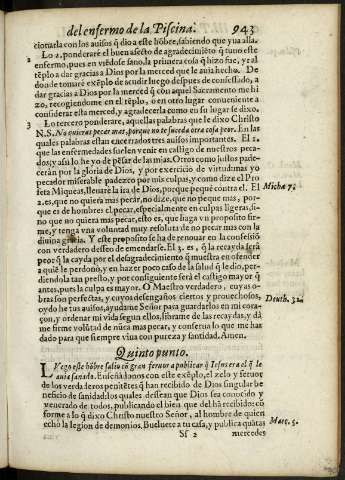 del enfermo de la Piscina. 943
cionarla con los auisos q̃ dio a este hõbre, sabiendo que yua alla.
2 Lo 2. ponderarè el buen afecto de agradecimiẽto q̃ tuuo este
enfermo, pues en viẽdose sano, la primera cosa q̃ hizo fue, yr al
tẽplo a dar gracias a Dios por la merced que le auia hecho. De
donde tomarè exẽplo de acudir luego despues de confessado, a
dar gracias a Dios por la merced q̃ con aquel Sacramento me hi
zo, recogiendome en el tẽplo, o en otro lugar conueniente a
considerar esta merced, y agradecerla como en su lugar se dixo.
3 Lo tercero ponderare, aquellas palabras que le dixo Christo
N. S. No quieras pecar mas, porque no te suceda otra cosa peor. En las
quales palabras estan encerrados tres auisos importantes. El 1.
que las enfermedades suelen venir en castigo de nuestros peca-
dos, y assi lo he yo de pẽsar de las mias. Otros como justos pade-
ceràn por la gloria de Dios, y por exercicio de virtud: mas yo
pecador miserable padezco por mis culpas, y como dize el Pro
feta Miqueas, lleuarè la ira de Dios, porque pequè contra el. El
Mich. 7.
2. es, que no quiera mas pecar, no dize, que no peque mas, por-
que es de hombres el pecar, especialmente en culpas ligeras, si-
no que no quiera mas pecar, esto es, que haga vn proposito fir-
me, y tenga vna voluntad muy resoluta de no pecar mas con la
diuina gracia. Y este proposito se ha de renouar en la confessiõ
con verdadero deseo de emendarse. El 3. es, q̃ la recayda serà
peor q̃ la cayda por el desagradecimiẽto q̃ muestra en ofender
a quiẽ le perdonò, y en hazer poco caso de la salud q̃ le dio, per-
diendola tan presto, y por consiguiente serà el castigo mayor q̃
antes, pues la culpa es mayor. O Maestro verdadero, cuyas o-
bras son perfectas, y cuyos desengaños ciertos y prouechosos,
Deuth. 32.
cõ tus auisos, ayudame Señor para guardarlos en mi cora-
çon, y ordenar mi vida segun ellos, librame de las recaydas, y dà
me firme volũtad de nũca mas pecar, y conserua lo que me has
dado para que siempre viua con pureza y santidad. Amen.
Quinto punto.
LVego este hõbre salio cõ gran feruor a publicar q̃ Iesus era el q̃ le
auia sanado. Enseñãdonos con este exẽplo, el zelo y feruor
de los verdaderos penitẽtes q̃ han recibido de Dios singular be
neficio de sanidad: los quales desean que Dios sea conocido y
venerado de todos, publicando el bien que del hã recibido: cõ
forme a lo q̃ dixo Christo nuestro Señor, al hombre de quien
echò la legion de demonios. Bueluete a tu casa, y publica quãtas
Marc. 5.
Sf 2 mercedes